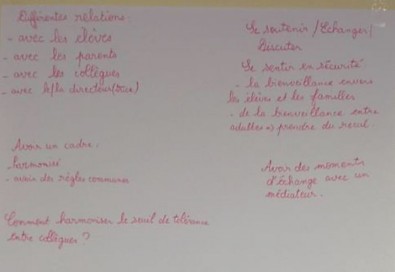 Différentes relations
- avec les élèves
- avec les parents
- avec les collègues
- avec le/la directeur(trice)
Avoir un cadre.
- harmonisé
- avoir des règles communes
Comment harmoniser le seuil de tolérance
entre collègues ?
Se soutenir / Echanger /
Discuter
Se sentir en sécurité
- la bienveillance envers
les élèves et les familles
- de la bienveillance entre
adultes => prendre du recul.
Avoir des moments
d'échange avec un
médiateur.